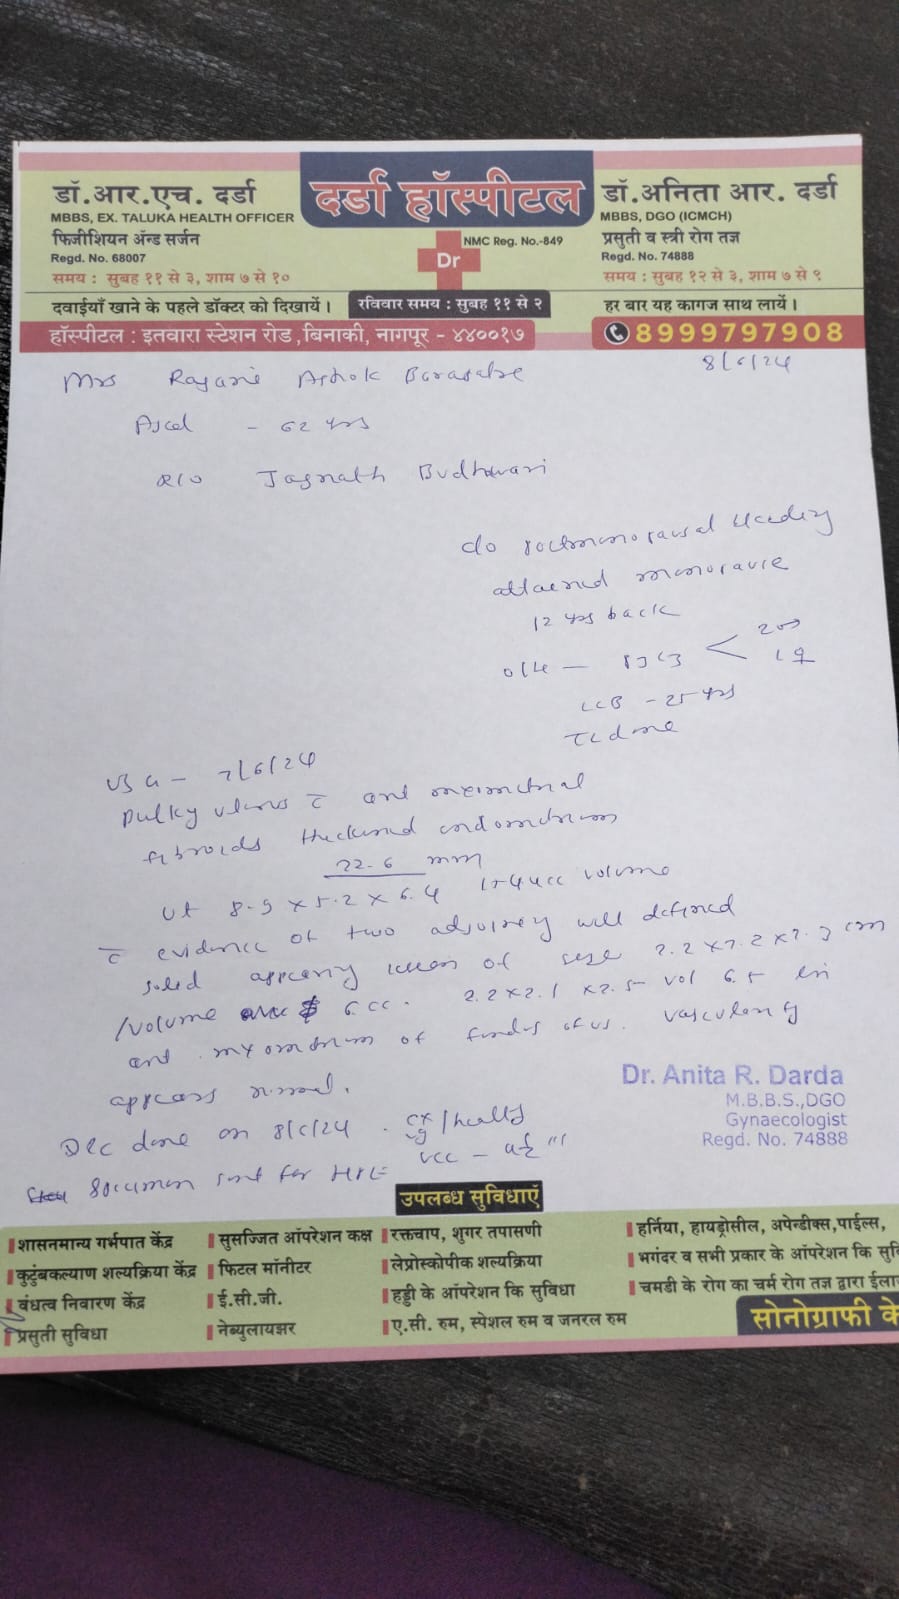 दर्डा हॉस्पीटल
NMC Reg. No.-849
Dr
डॉ.आर.एच. दर्डा
MBBS, EX. TALUKA HEALTH OFFICER
फिजीशियन ॲन्ड सर्जन
Regd. No. 68007
समय : सुबह ११ से ३, शाम ७ से १०
डॉ.अनिता आर. दर्डा
MBBS, DGO (ICMCH)
प्रसुती व स्त्री रोग तज्ञ
Regd. No. 74888
समय : सुबह १२ से ३, शाम ७ से ९
दवाईयाँ खाने के पहले डॉक्टर को दिखायें।
रविवार समय : सुबह ११ से २
हर बार यह कागज साथ लायें।
हॉस्पीटल : इतवारा स्टेशन रोड ,बिनाकी, नागपूर - ४४००१७
8999797908
8/6/24
Mrs Ashok
- 62 yrs
R/O Jagnath Budhwari
c/o postmenopausal bleeding
attained menopause
12 yrs back
O/H —
LCB - 25 yrs
TL done
USG - 7/6/24
Bulky uterus c ant myometrial
fibroids thickened endometrium
22.6 mm
Ut 8.9 x 5.2 x 6.4 volume
c evidence of two adjoining well defined
solid appearing lesion of size cm
/volume 6 cc. 2.2 x 2.1 x 2.5 vol 6.5 in
ant myometrium of fundus of ut. vascularity
appears normal.
D&C done on 8/6/24. cx/vg healthy
specimen sent for HPE
Dr. Anita R. Darda
M.B.B.S.,DGO
Gynaecologist
Regd. No. 74888
उपलब्ध सुविधाएॅ
शासनमान्य गर्भपात केंद्र
कुटुंबकल्याण शल्यक्रिया केंद्र
वंधत्व निवारण केंद्र
प्रसुती सुविधा
सुसज्जित ऑपरेशन कक्ष
फिटल मॉनीटर
ई.सी.जी.
नेब्युलायझर
रक्तचाप, शुगर तपासणी
लेप्रोस्कोपीक शल्यक्रिया
हड्डी के ऑपरेशन कि सुविधा
ए.सी. रुम, स्पेशल रुम व जनरल रुम
हर्निया, हायड्रोसील, अपेन्डीक्स,पाईल्स,
भगंदर व सभी प्रकार के ऑपरेशन कि
चमडी के रोग का चर्म रोग तज्ञ द्वारा
सोनोग्राफी